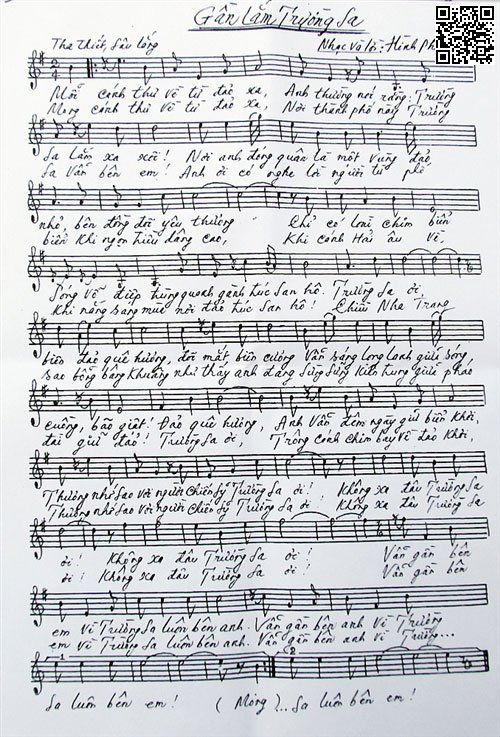 Gần lắm Trường Sa
Tha thiết, sâu lắng
Nhạc và lời: Hình Ph
Mỗi cánh thư về từ đảo xa, Anh thường nói rằng: Trường
Mong cánh thư về từ đảo xa, Nơi thành phố này Trường
Sa lắm xa xôi! Nơi anh đóng quân là một vùng đảo
Sa vẫn bên em! Anh ơi có nghe lời người từ phố
nhỏ, bên đồng đội yêu thương Chỉ có loài chim biển
biển khi ngọn triều dâng cao, Khi cánh Hải âu về,
Sóng vỗ điệp trùng quanh gành trúc san hô. Trường Sa ơi,
Khi nắng sang mùa nơi đảo trúc san hô! Chiều Nha Trang
biển đảo quê hương, đôi mắt biên cương vẫn sáng long lanh giữa sóng,
sao bỗng bâng khuâng như thấy anh đang sừng sững hiên ngang giữa pháo
cuồng, bão giật! Đảo quê hương, Anh vẫn đêm ngày giữ biển khơi,
đài giữ đảo! Trường Sa ơi, Trông cánh chim bay về đảo khơi,
Thương nhớ sao với người chiến sỹ Trường Sa ơi! Không xa đâu Trường Sa
Thương nhớ sao với người chiến sỹ Trường Sa ơi! Không xa đâu Trường Sa
ơi! Không xa đâu Trường Sa ơi! Vẫn gần bên
ơi! Không xa đâu Trường Sa ơi! Vẫn gần bên
em vì Trường Sa luôn bên anh. Vẫn gần bên anh vì Trường
em vì Trường Sa luôn bên anh. Vẫn gần bên anh vì Trường...
1 2
Sa luôn bên em! (Mong)... Sa luôn bên em!